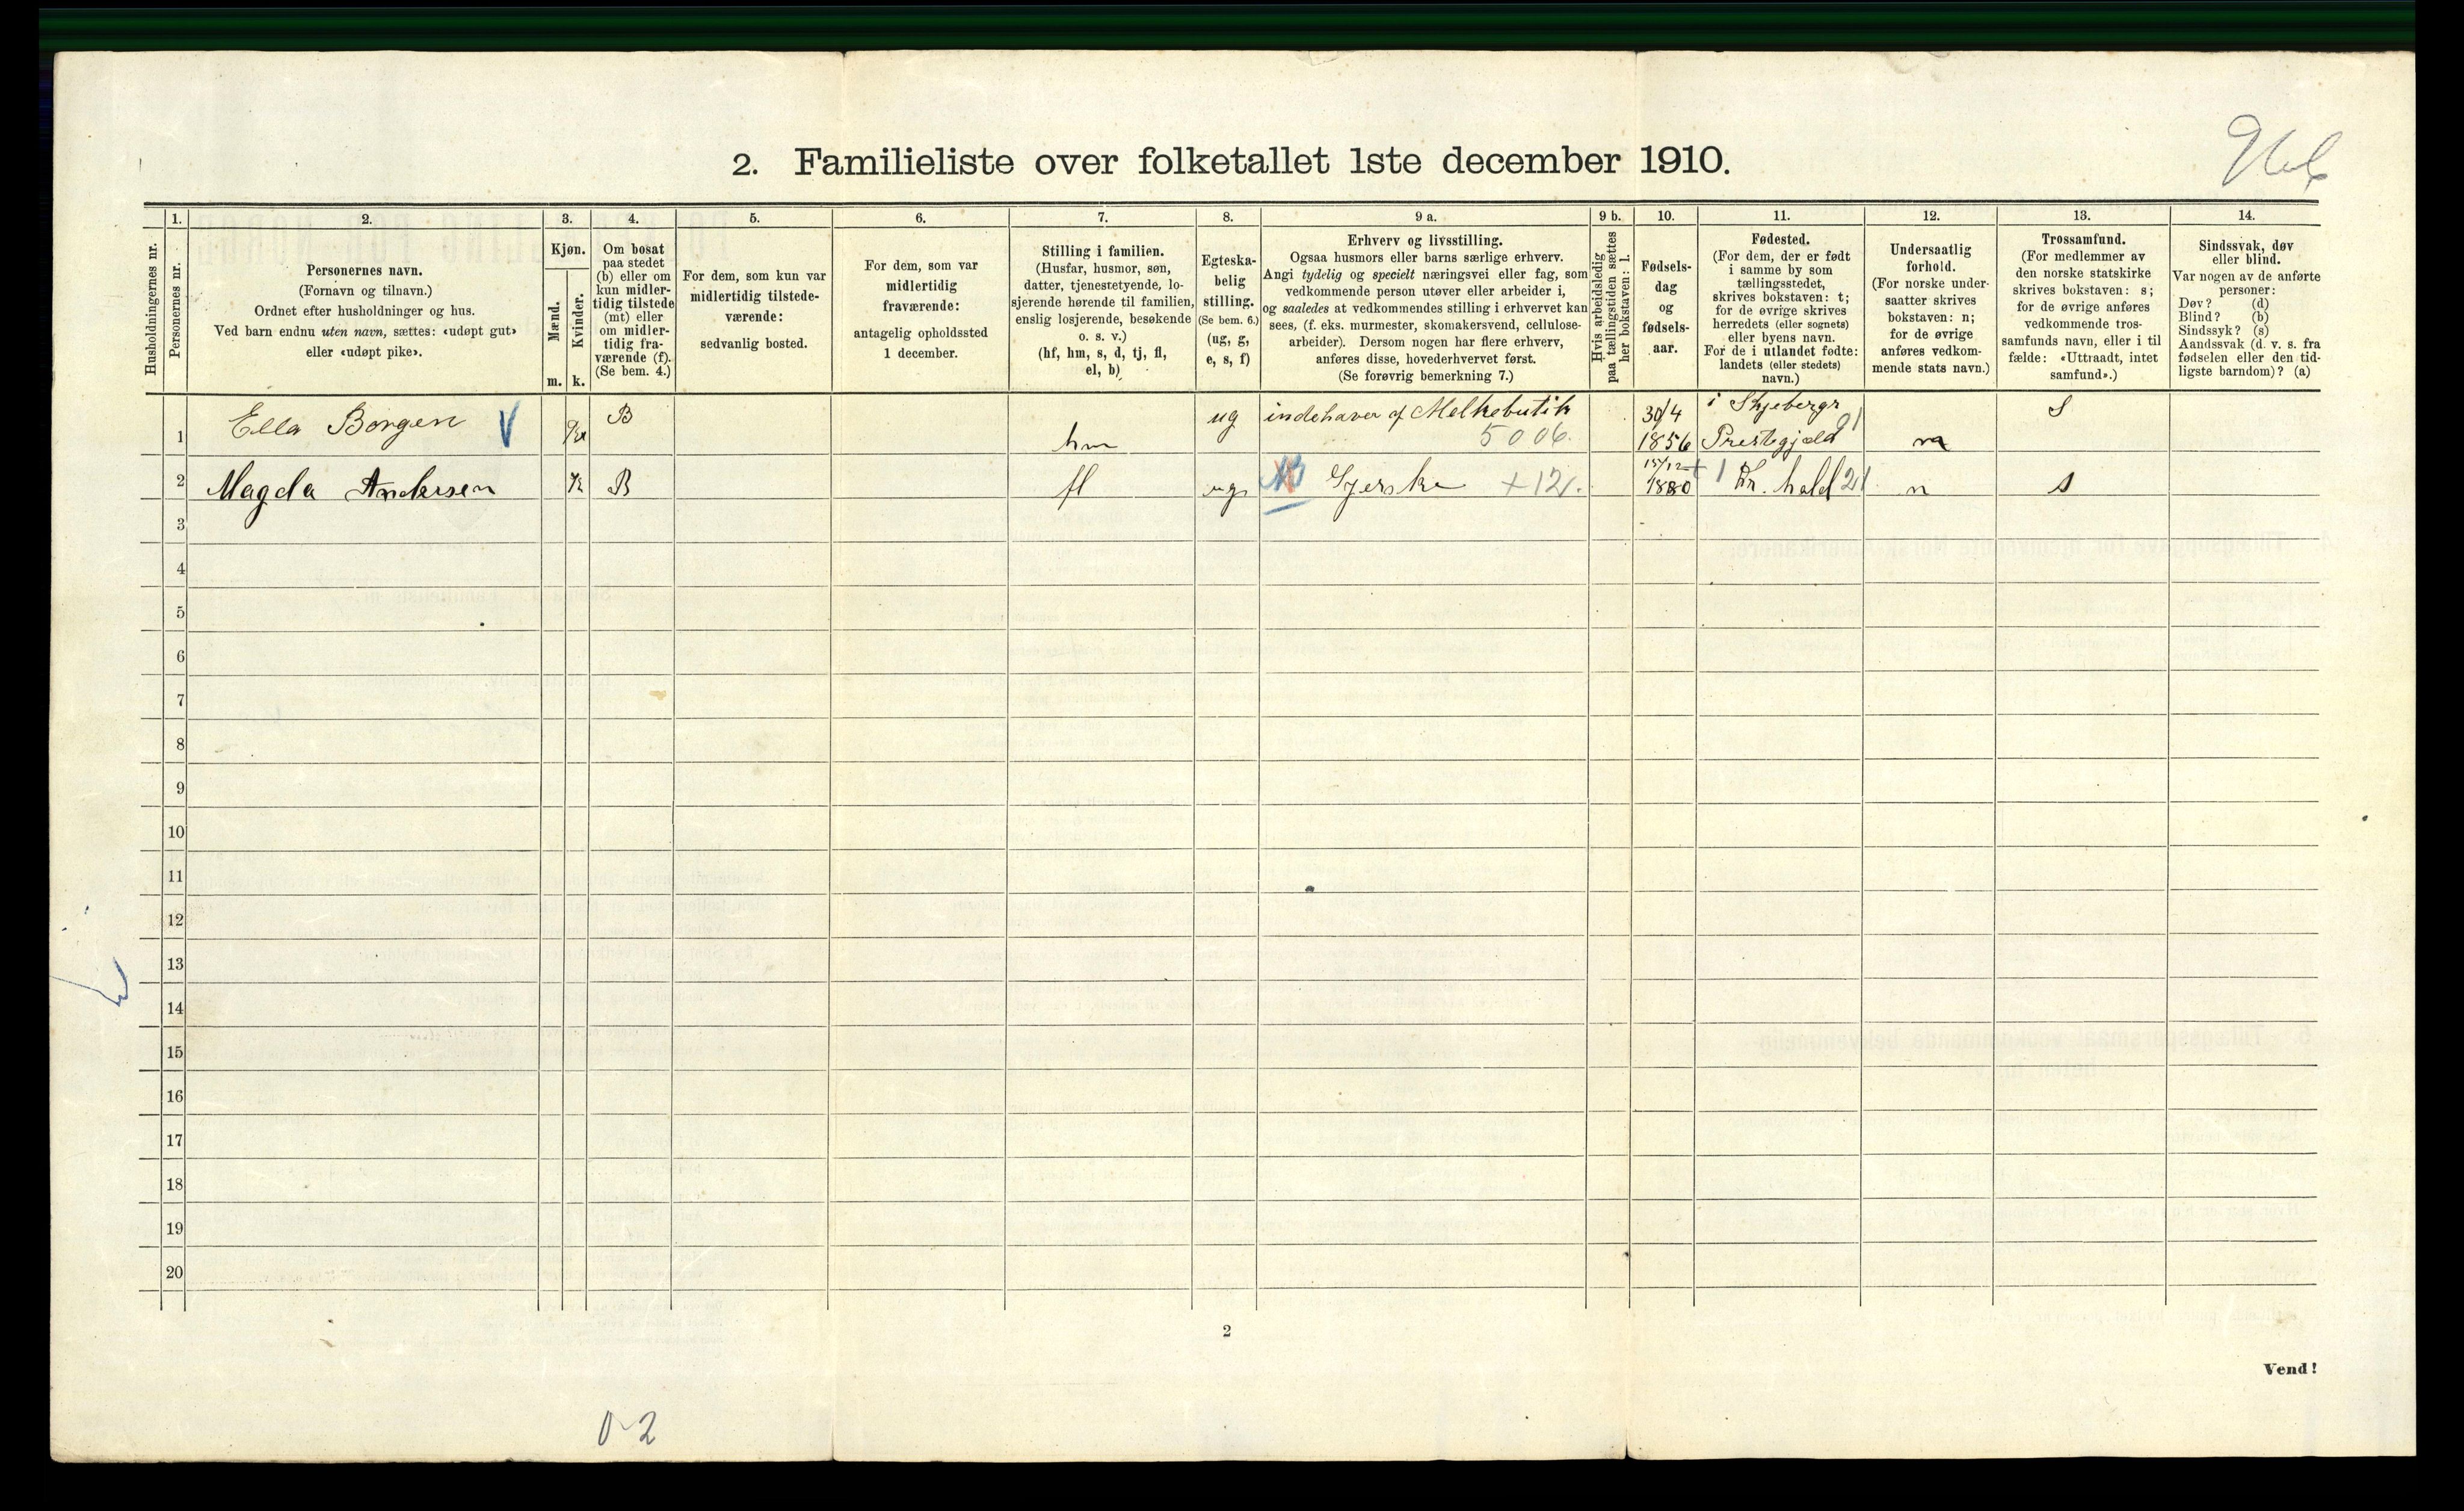 2. Familieliste over folketallet 1ste december 1910.
Husholdningernes nr.
1.
Personernes nr.
2.
Personernes navn.
(Fornavn og tilnavn.)
Ordnet efter husholdninger og hus.
Ved barn endnu uten navn, sættes: «udøpt gut»
eller «udøpt pike».
3.
Kjøn.
Mænd.
Kvinder.
m.
k.
4.
Om bosat
paa stedet
(b) eller om
kun midler-
tidig tilstede
(mt) eller
om midler-
tidig fra-
værende (f).
(Se bem. 4.)
5.
For dem, som kun var
midlertidig tilstede-
værende:
sedvanlig bosted.
6.
For dem, som var
midlertidig
fraværende:
antagelig opholdssted
1 december.
7.
Stilling i familien.
(Husfar, husmor, søn,
datter, tjenestetyende, lo-
sjerende hørende til familien,
enslig losjerende, besøkende
o. s. v.)
(hf, hm, s, d, tj, fl,
el, b)
8.
Egteska-
belig
stilling.
(Se bem. 6.)
(ug, g,
e, s, f)
9 a.
Erhverv og livsstilling.
Ogsaa husmors eller barns særlige erhverv.
Angi tydelig og specielt næringsvei eller fag, som
vedkommende person utøver eller arbeider i,
og saaledes at vedkommendes stilling i erhvervet kan
sees, (f. eks. murmester, skomakersvend, cellulose-
arbeider). Dersom nogen har flere erhverv,
anføres disse, hovederhvervet først.
(Se forøvrig bemerkning 7.)
9 b.
Hvis arbeidsledig
paa tællingstiden sættes
her bokstaven: l.
10.
Fødsels-
dag
og
fødsels-
aar.
11.
Fødested.
(For dem, der er født
i samme by som
tællingsstedet,
skrives bokstaven: t;
for de øvrige skrives
herredets (eller sognets)
eller byens navn.
For de i utlandet fødte:
landets (eller stedets)
navn.)
12.
Undersaatlig
forhold.
(For norske under-
saatter skrives
bokstaven: n;
for de øvrige
anføres vedkom-
mende stats navn.)
13.
Trossamfund.
(For medlemmer av
den norske statskirke
skrives bokstaven: s;
for de øvrige anføres
vedkommende tros-
samfunds navn, eller i til
fælde: «Uttraadt, intet
samfund».)
14.
Sindssvak, døv
eller blind.
Var nogen av de anførte
personer:
Døv? (d)
Blind? (b)
Sindssyk? (s)
Aandssvak (d. v. s. fra
fødselen eller den tid-
ligste barndom)? (a)
1 Ella Borgen V B hm ug indehaver af Melkebutik 5006. 30/4 1856 i Skjebergs Prestegjæld n S
2 Magda Andersen k B fl ug Syerske +12. 15/12 1880 Fr. hald 21 n s
3
4
5
6
7
8
9
10
11
12
13
14
15
16
17
18
19
20
2
Vend!
0-2